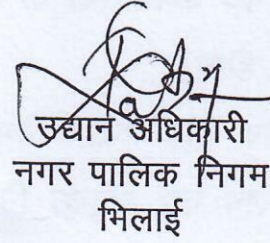 उद्यान अधिकारी
नगर पालिक निगम
भिलाई